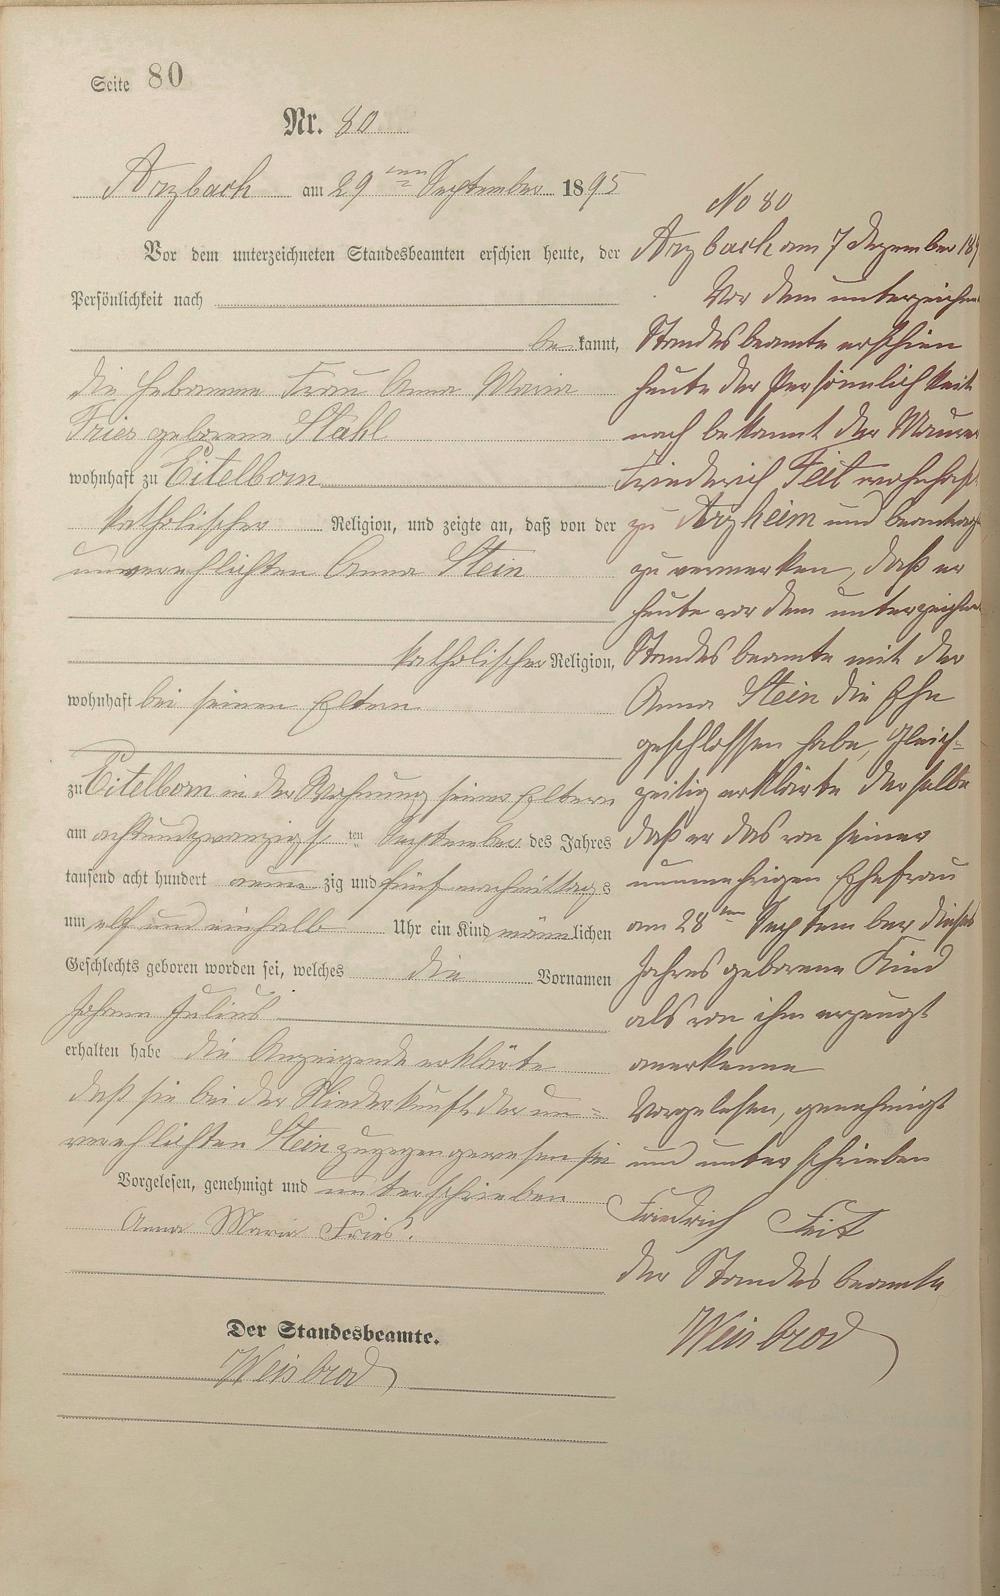 Seite 80
Nr. 80
Arzbach am 29ten September 1895
Vor dem unterzeichneten Standesbeamten erschien heute, der
Persönlichkeit nach
bekannt,
die Hebamme Frau Anna Maria
Fries geborene Stahl
wohnhaft zu Eitelborn
katholischer Religion, und zeigte an, daß von der
unverehlichten Anna Stein
katholischer Religion,
wohnhaft bei seinen Eltern
zu Eitelborn in der Wohnung seiner Eltern
am achtundzwanzigsten September des Jahres
tausend acht hundert neunzig und fünf nachmittags
um elf und einhalb Uhr ein Kind männlichen
Geschlechts geboren worden sei, welches die Vornamen
Johann Julius
erhalten habe die Anzeigende erklärte
daß sie bei der Niederkunft der un-
verehlichten Stein zugegen gewesen sei
Vorgelesen, genehmigt und unterschrieben
Anna Maria Fries.
Der Standesbeamte.
Weisbrod
No 80
Arzbach am 7 Dezember 189
Vor dem unterzeichn
Standesbeamte erschien
heute der Persönlichkeit
nach bekannt der Maurer
Friedrich Feit wohnhaft
zu Arzheim und beantrag
zu vermerken, daß er
heute vor dem unterzeichn
Standesbeamte mit der
Anna Stein die Ehe
geschlossen habe, Gleich-
zeitig erklärte derselbe
daß er das von seiner
nunmehrigen Ehefrau
am 28ten September dieses
Jahres geborene Kind
als von ihm erzeugt
anerkenne
Vorgelesen, genehmigt
und unterschrieben
Friedrich Feit
der Standesbeamte
Weisbrod